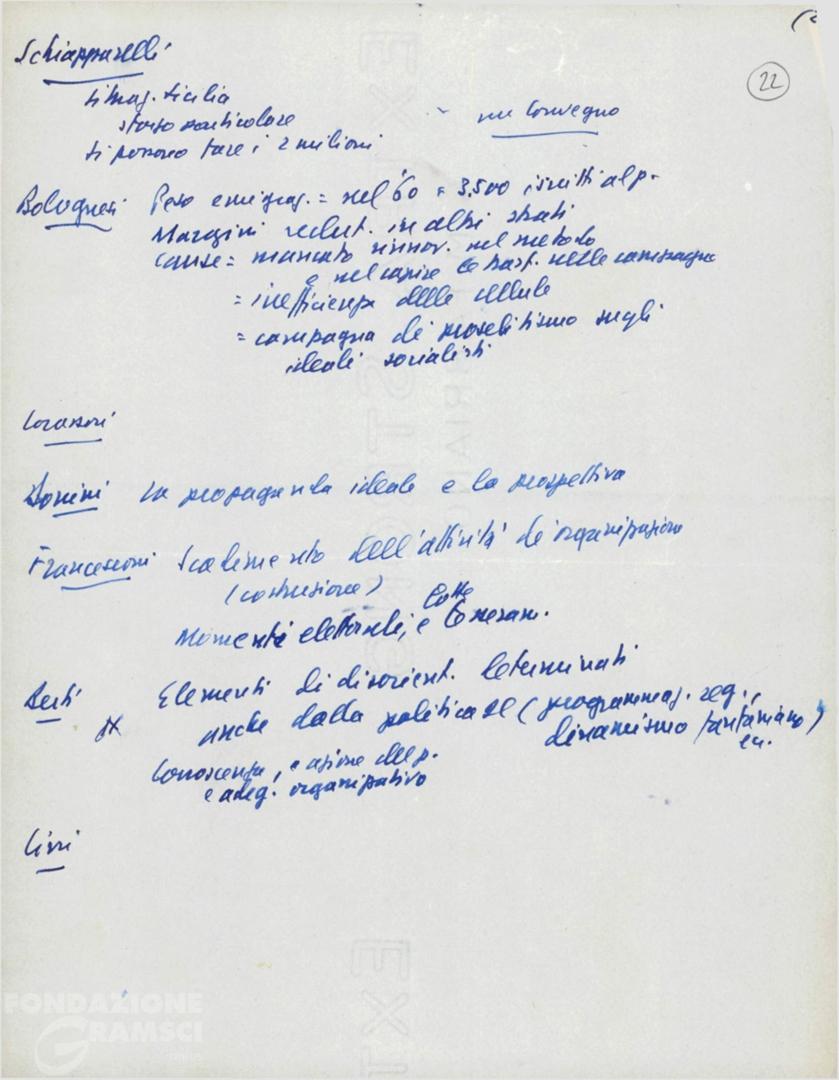 (2
22
Schiapparelli
situaz. Sicilia
sforzo particolare
si possono fare i 2 milioni
un Convegno
Bolognesi Peso emigraz. = nel '60 = 3.500 iscritti al p.
Margini reclut. in altri strati
cause = mancato rinnov. nel metodo
e nel capire le trasf. nelle campagne
= inefficienza delle cellule
= campagna di proselitismo sugli
ideali socialisti
Corassori
Donini La propaganda ideale e la prospettiva
Francesconi Scadimento dell'attività di organizzazione
(costruzione)
Momenti elettorali, e lotte tesseram.
Berti Elementi di disorient. determinati
anche dalla politica (programmaz. reg.,
dinamismo fanfaniano)
Conoscenza, e azione del p.
e adeg. organizzativo
Cinni
FONDAZIONE
GRAMSCI